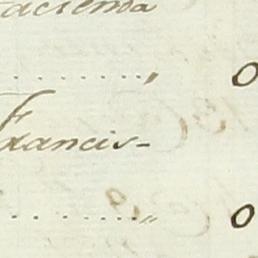 acienda
.........., 0
Francis-
..........„ 0